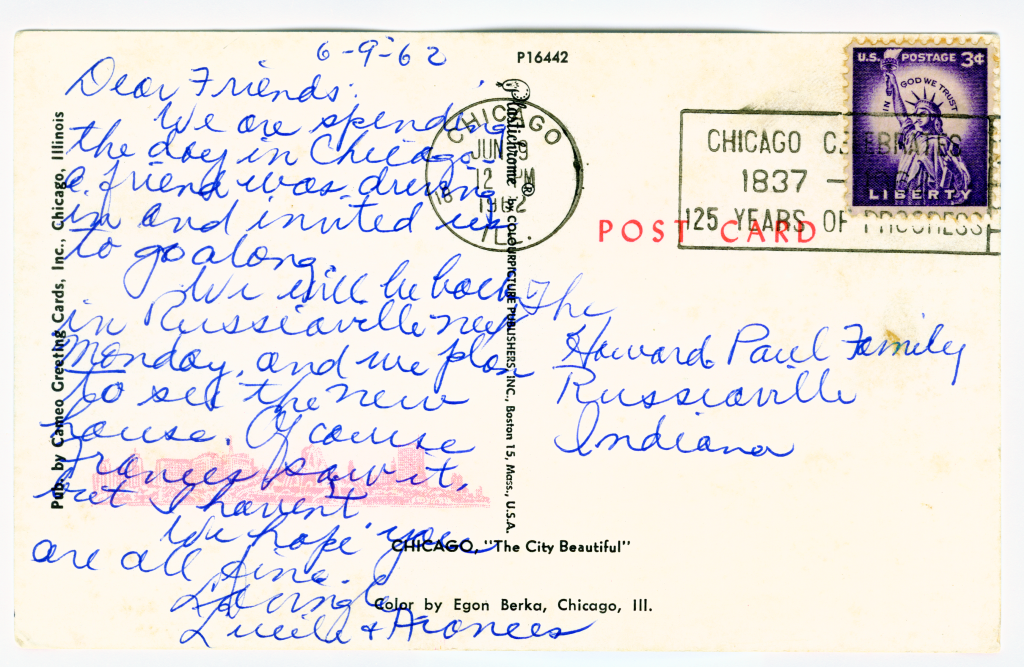 6-9-62
Dear Friends:
We are spending
the day in Chicago.
A friend was driving
in and invited us
to go along.
We will be back
in Russiaville next
Monday, and we plan
to see the new
house. Of course
Frances saw it,
but I haven't
We hope you
are all fine.
Lovingly
Lucile & Frances
Pub. by Cameo Greeting Cards, Inc., Chicago, Illinois
P16442
Plastichrome ® by COLOURPICTURE PUBLISHERS, INC., Boston 15, Mass., U.S.A.
CHICAGO
JUN 9
12 PM
1962
ILL.
CHICAGO CELEBRATES
1837 –
125 YEARS OF PROGRESS
U.S. POSTAGE 3¢
IN GOD WE TRUST
LIBERTY
POST CARD
The
Howard Paul Family
Russiaville
Indiana
CHICAGO, "The City Beautiful"
Color by Egon Berka, Chicago, Ill.